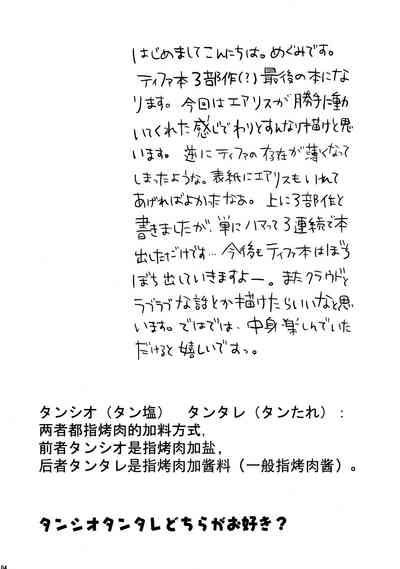 はじめましてこんにちは。めぐみです。
ティファ本3部作(?)最後の本にな
ります。今回はエアリスが勝手に動
いてくれた感じでわりとすんなり描けたと思
います。逆にティファの存在が薄くなって
しまったような。表紙にエアリスもいれて
あげればよかったなぁ。上に3部作と
書きましたが、単にハマって3連続で本
出しただけです…今後もティファ本はぼち
ぼち出していきますよー。またクラウドと
ラブラブな話とか描けたらいいなと思
います。ではでは、中身楽しんでいた
だけると嬉しいですっ。
タンシオ（タン塩） タンタレ（タンたれ）：
两者都指烤肉的加料方式，
前者タンシオ是指烤肉加盐，
后者タンタレ是指烤肉加酱料（一般指烤肉酱）。
タンシオタンタレどちらがお好き？
04